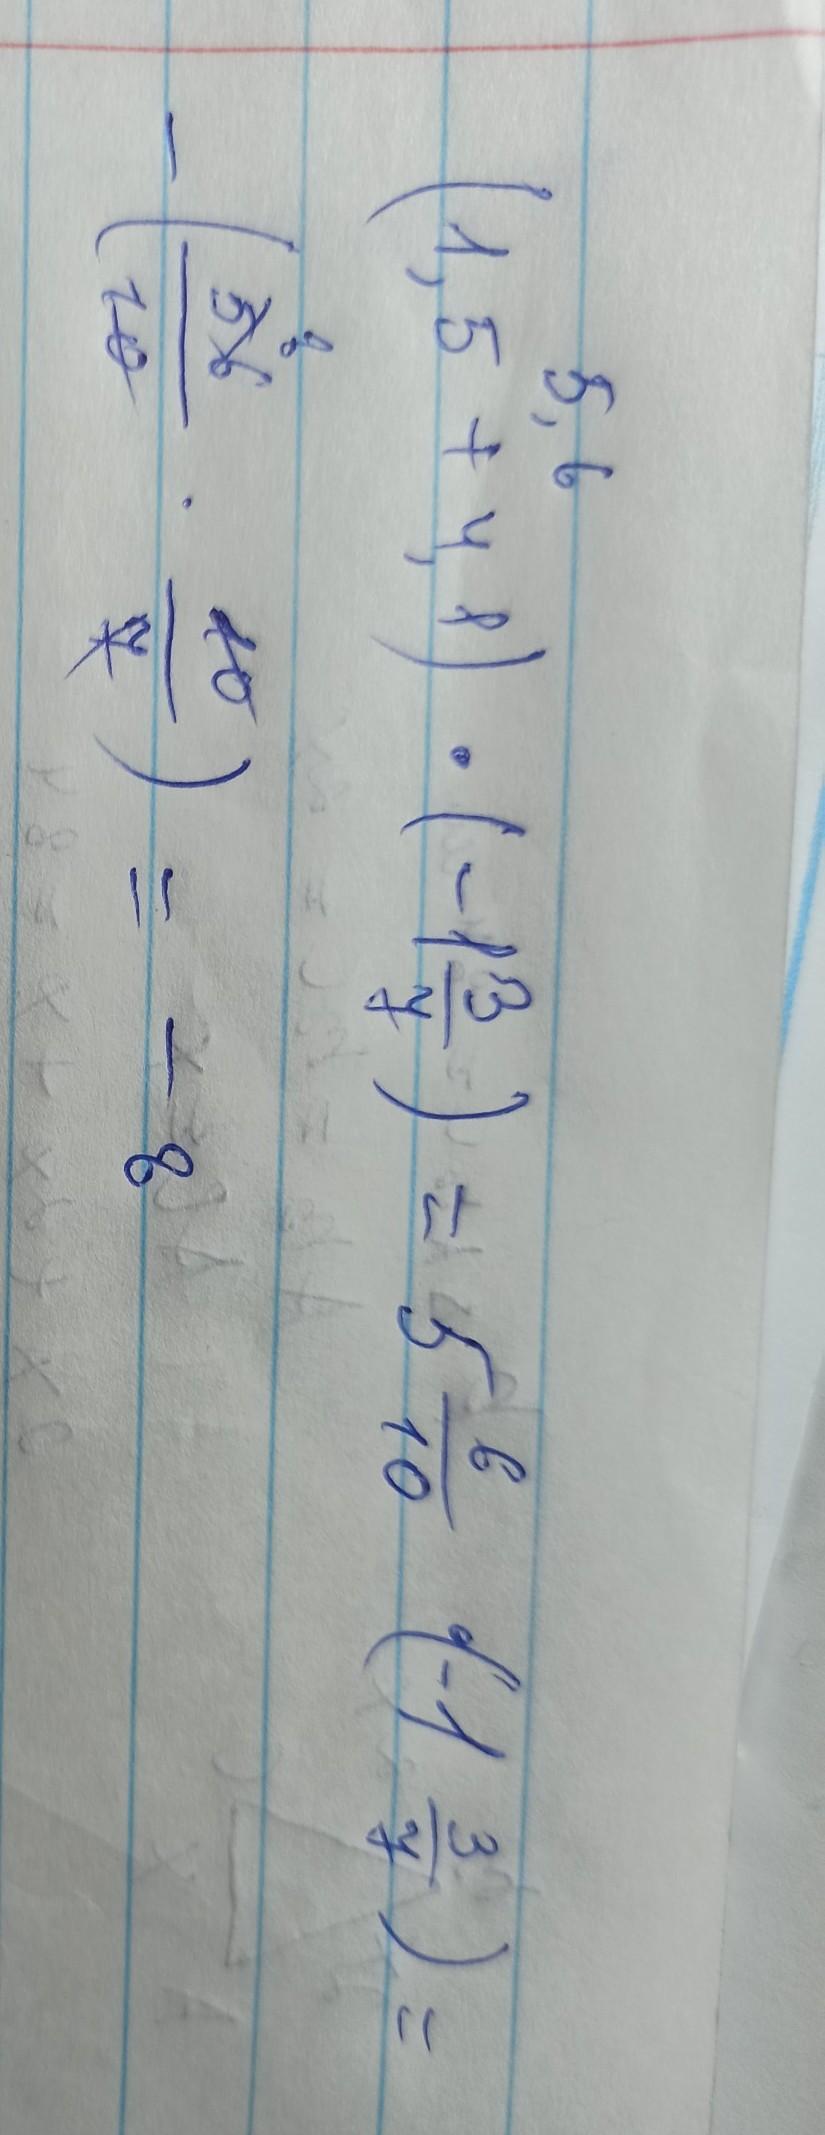 5,6
(1,5 + 4,1) · (-1 3/7) = 5 6/10 · (-1 3/7) =
8
- (56/10 · 10/7) = - 8